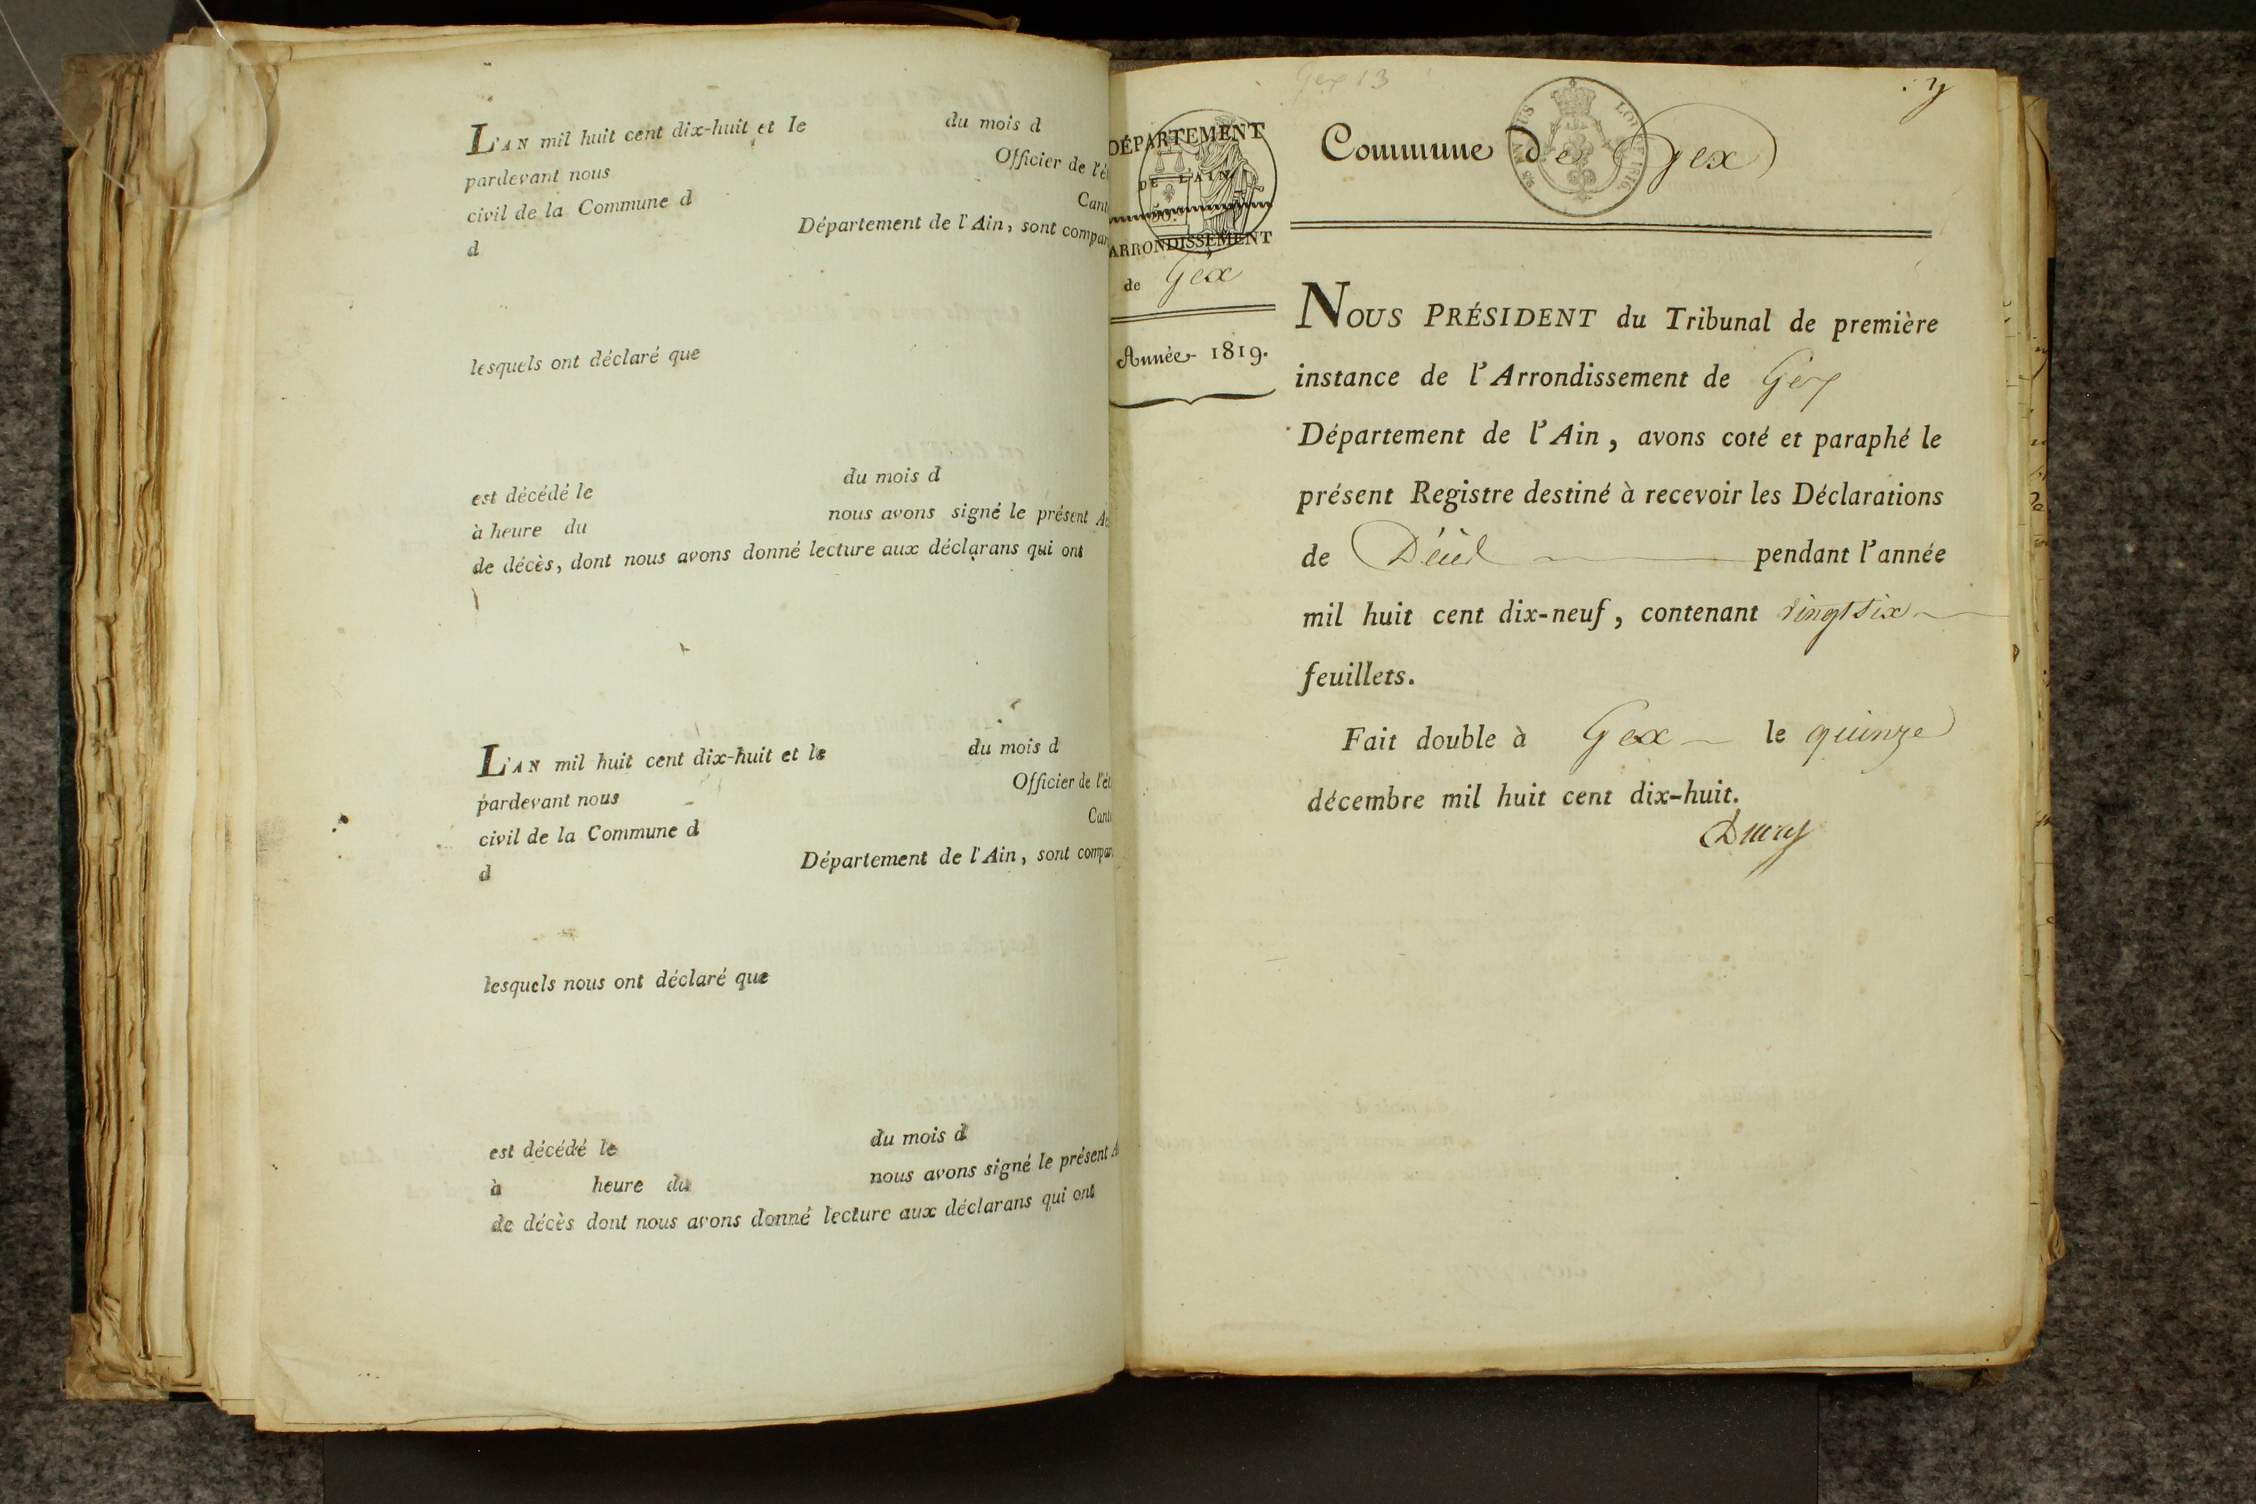 L'AN mil huit cent dix-huit et le du mois d
pardevant nous Officier de l'é
civil de la Commune d Cant
d Département de l'Ain, sont compar
lesquels ont déclaré que
est décédé le du mois d
à heure du nous avons signé le présent A
de décès, dont nous avons donné lecture aux déclarans qui ont
L'AN mil huit cent dix-huit et le du mois d
pardevant nous Officier de l'ét
civil de la Commune d Cant
d Département de l'Ain, sont compar
lesquels nous ont déclaré que
est décédé le du mois d
à heure du nous avons signé le présent A
de décès dont nous avons donné lecture aux déclarans qui ont
Gex 13
DÉPARTEMENT
DE L'AIN
ARRONDISSEMENT
de Gex
Année 1819.
Commune de Gex
NOUS PRÉSIDENT du Tribunal de première
instance de l'Arrondissement de Gex
Département de l'Ain, avons coté et paraphé le
présent Registre destiné à recevoir les Déclarations
de Décès pendant l'année
mil huit cent dix-neuf, contenant vingt six
feuillets.
Fait double à Gex le quinze
décembre mil huit cent dix-huit.